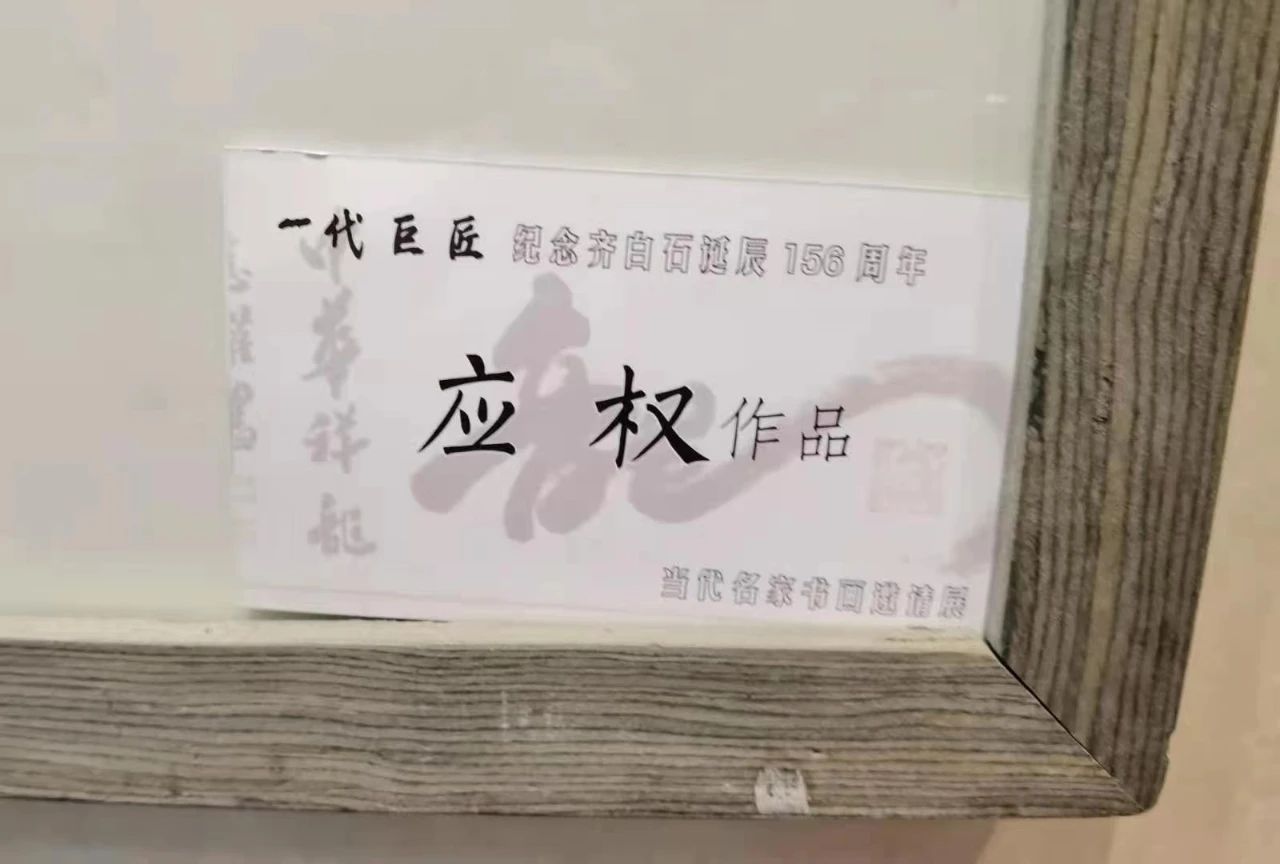 一代巨匠 纪念齐白石诞辰156周年
应权作品
当代名家书画邀请展
中华祥龙